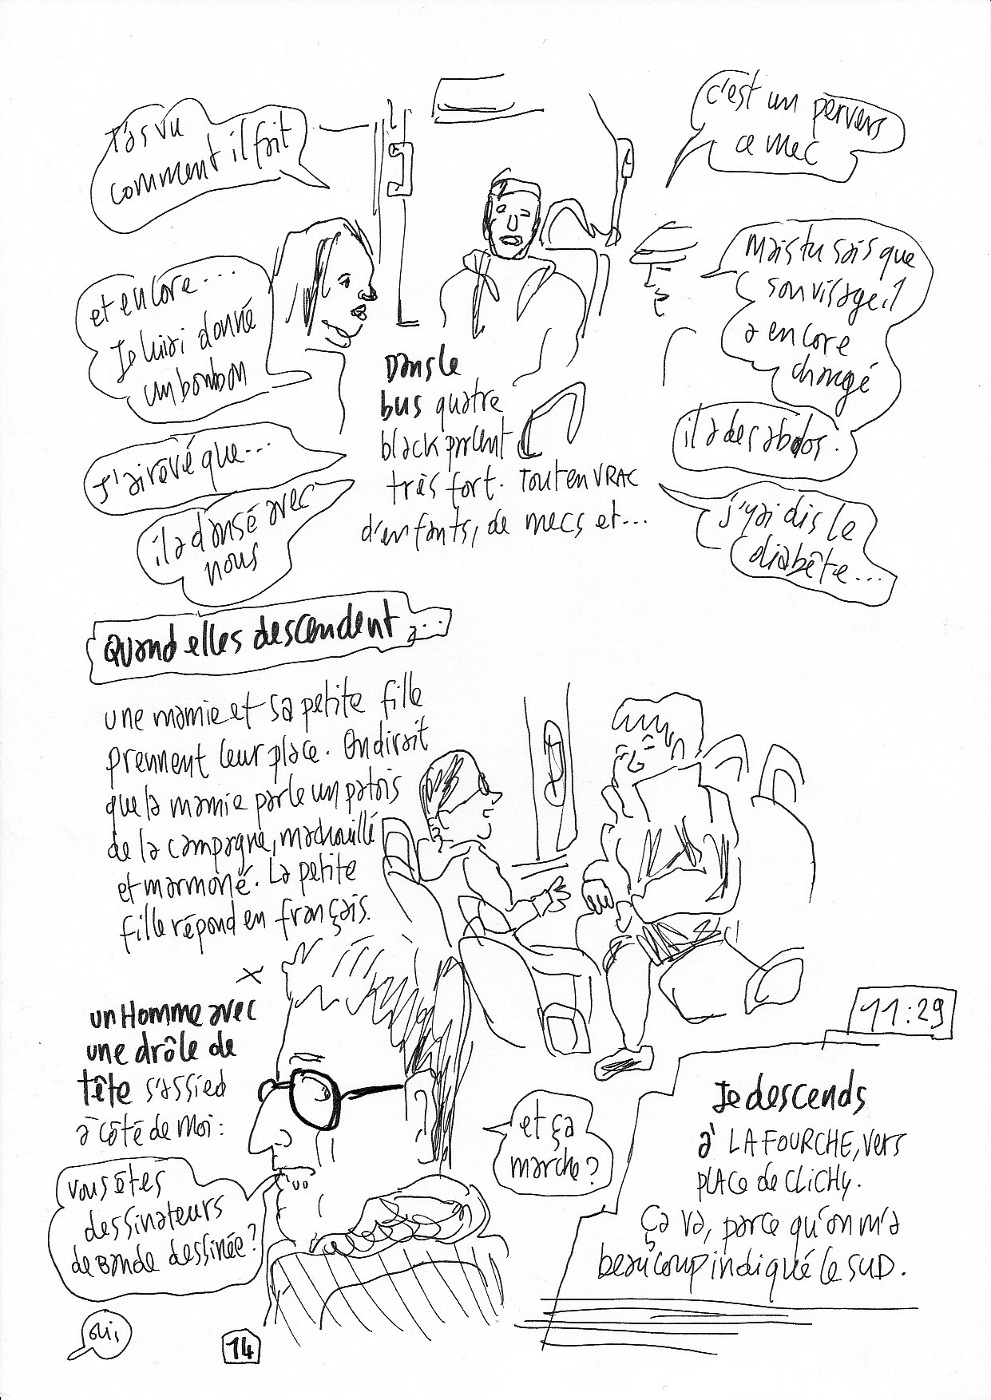 T'as vu
comment il fait
c'est un pervers
ce mec
et encore...
Je lui ai donné
un bonbon
Mais tu sais que
son visage, il
a encore
changé
J'ai rêvé que...
il a des abdos.
il a dansé avec
nous
j'y ai dis le
diabète...
Dans le
bus quatre
black parlent
très fort. Tout en VRAC
d'enfants, de mecs et...
Quand elles descendent,...
une mamie et sa petite fille
prennent leur place. On dirait
que la mamie parle un patois
de la campagne, machouillé
et marmoné. La petite
fille répond en français.
un Homme avec
une drôle de
tête s'assied
à côté de moi:
Vous êtes
dessinateurs
de bande dessinée?
oui,
et ça
marche?
11:29
Je descends
à LA FOURCHE, vers
place de CLiCHy.
ça va, parce qu'on m'a
beaucoup indiqué le SUD.
14